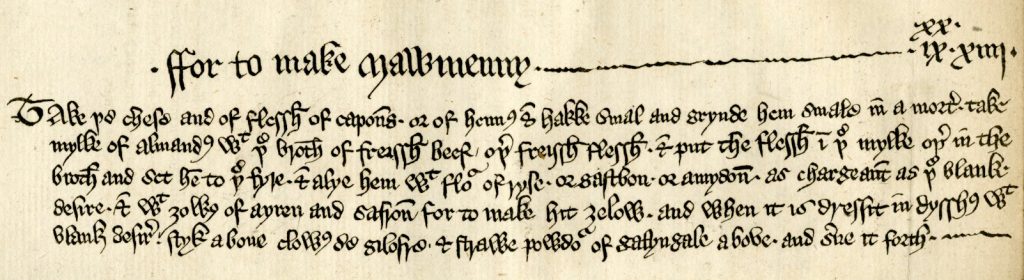 xx
· ffor to make Malwmenny · ix · xiiij ·
TAke þe chese and of flessħ of capōns · or of henn9 & hakke smal and grynde hem smale in̄ a mort͛ · take
mylke of almand9 wᵗ þͤ brotħ of freissħ beef · oþ͛ freissħ flessħ · & put the flessħ ī þͤ mylke oþ͛ in the
brotħ and set hē to þͤ fyre · & alye hem wᵗ floᵘ of ryse · or gastbon · or amydon̄ · as chargeāt as þͤ blanke
desire · & wᵗ ȝolk9 of ayren and safron̄ for to make hit ȝelow · and when it is dressit in dyssh9 wᵗ
blank desir͛ · styk a boue clow9 de gilofre · & strawe powdoᵘ of galyngale aboue · and s͛ue it forth ·